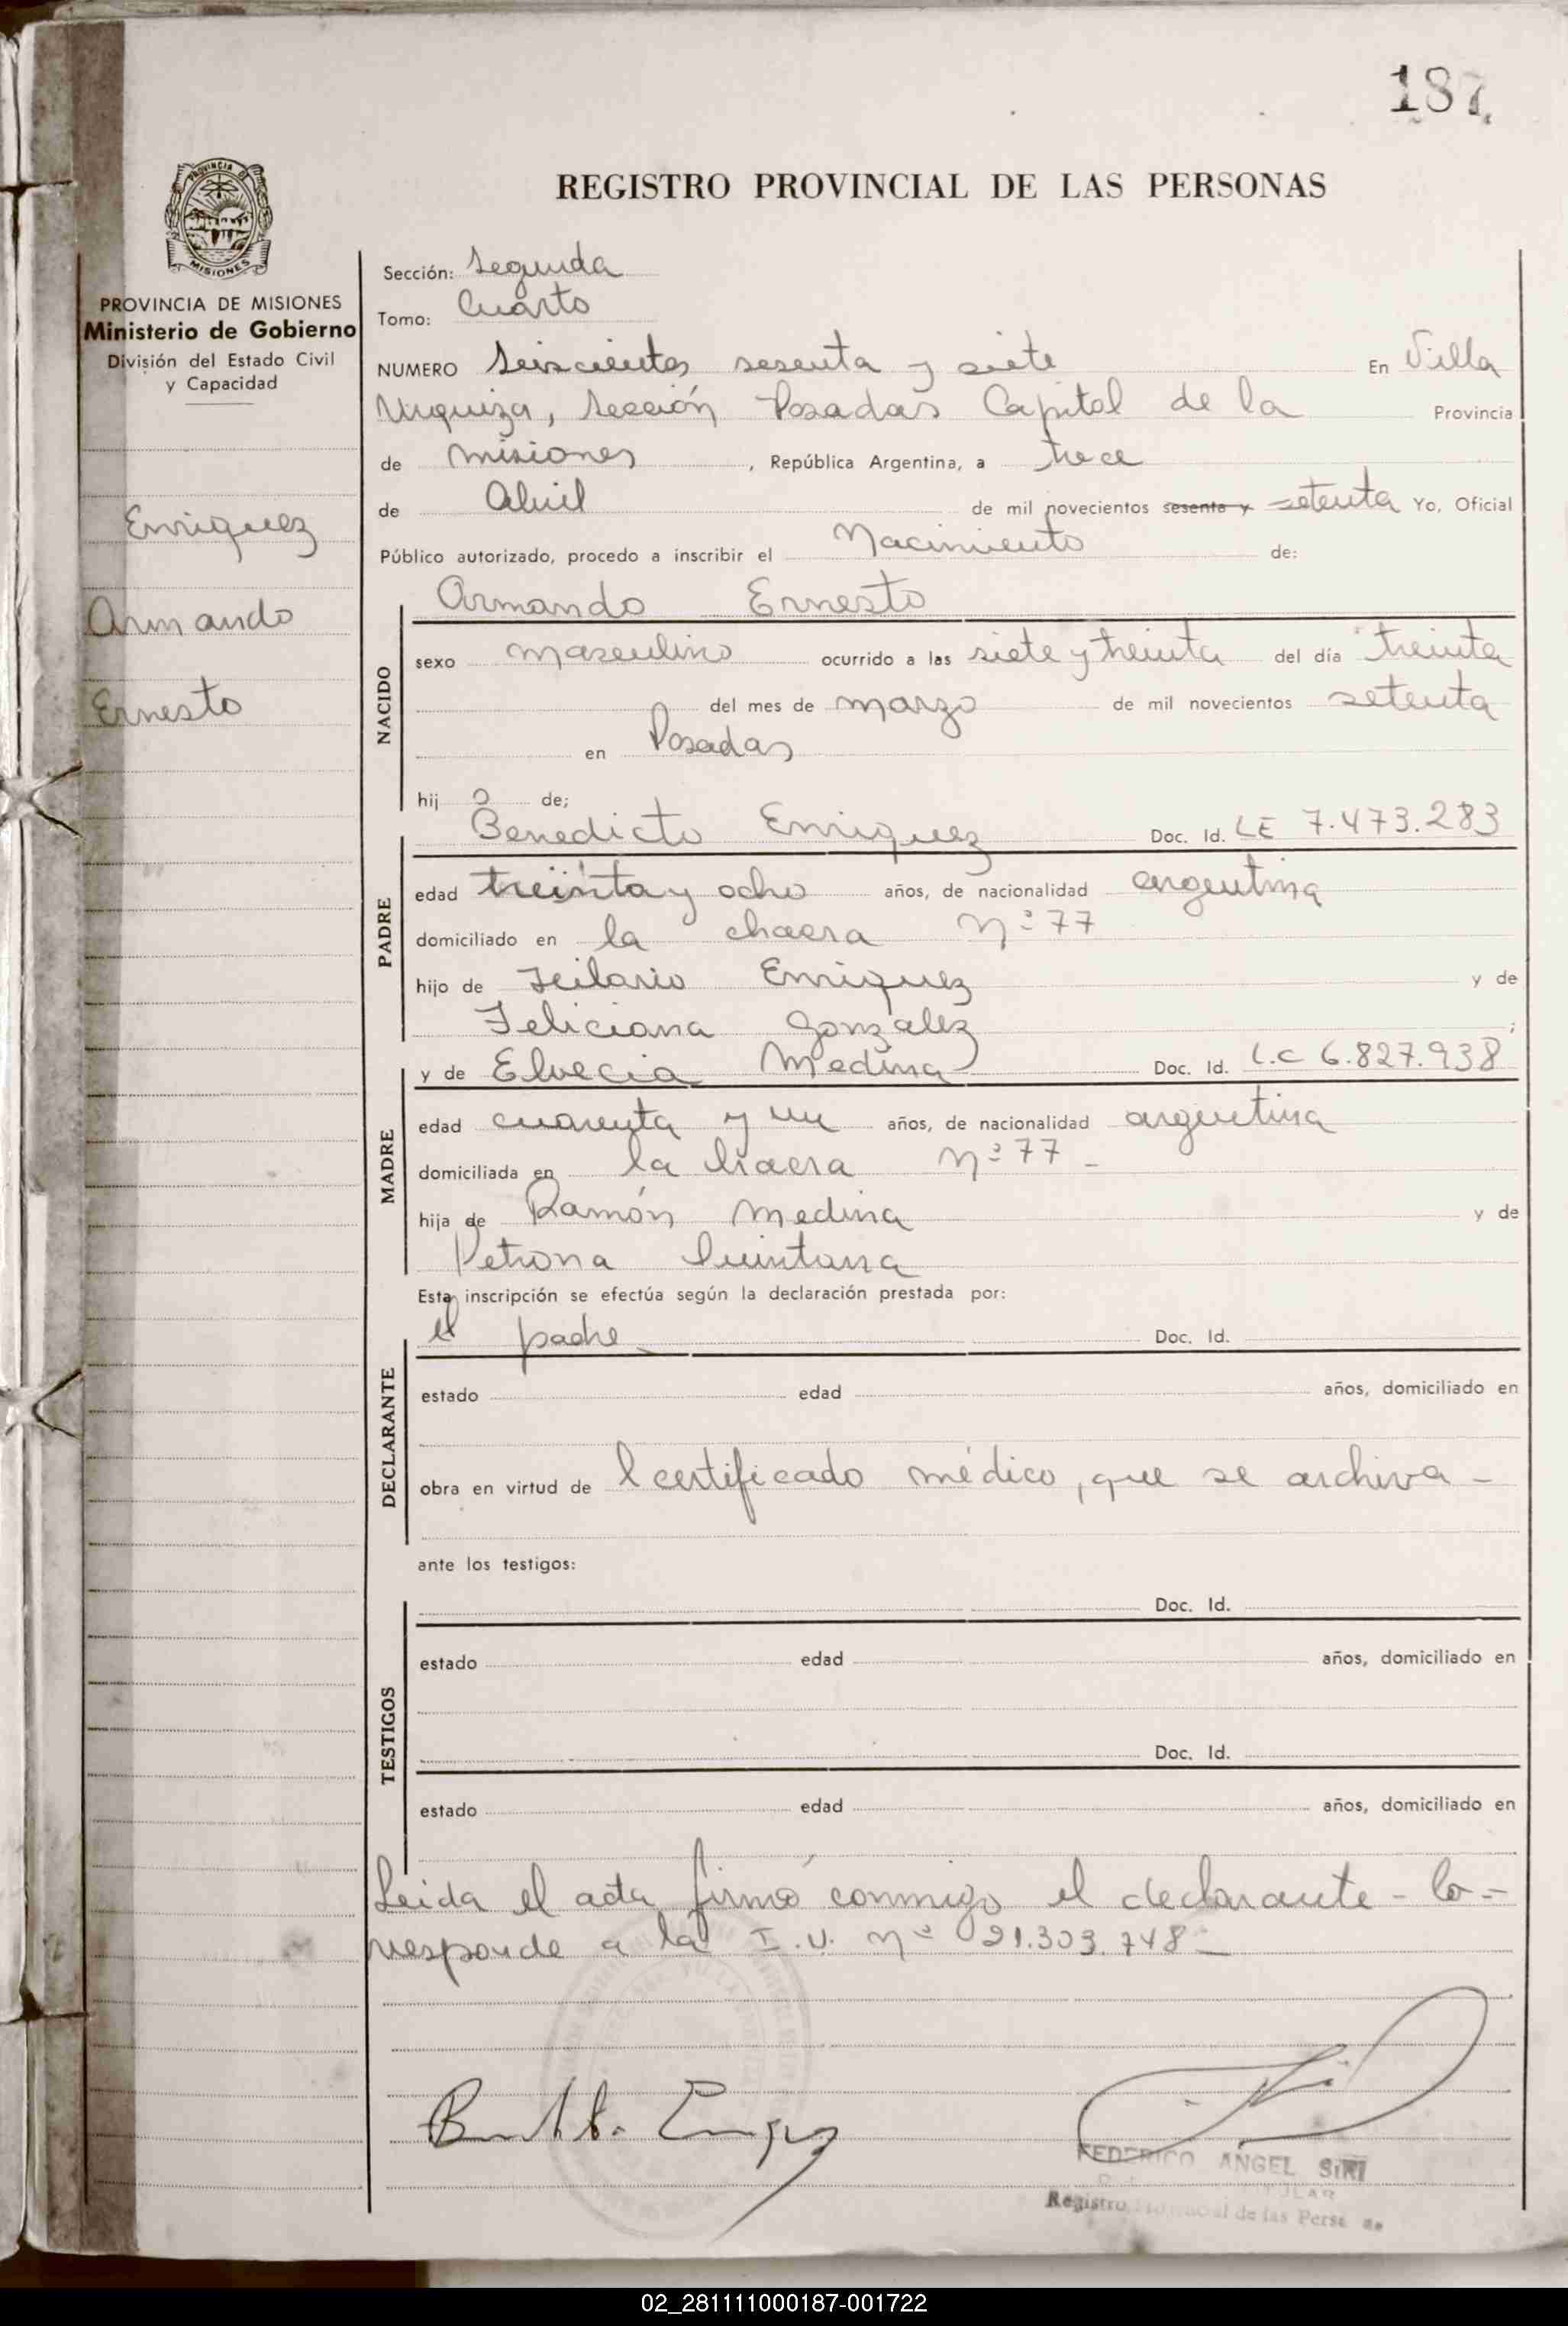 187
PROVINCIA DE MISIONES
MISIONES
PROVINCIA DE MISIONES
Ministerio de Gobierno
División del Estado Civil
y Capacidad
Enriquez
Armando
Ernesto
REGISTRO PROVINCIAL DE LAS PERSONAS
Sección: Segunda
Tomo: Cuarto
NUMERO Seiscientos sesenta y siete En Villa
Urquiza, Sección Posadas Capital de la Provincia
de misiones, República Argentina, a trece
de Abril de mil novecientos sesenta y setenta Yo, Oficial
Público autorizado, procedo a inscribir el Nacimiento de:
Armando Ernesto
NACIDO
sexo masculino ocurrido a las siete y treinta del día treinta
del mes de marzo de mil novecientos setenta
en Posadas
hij o de;
Benedicto Enriquez Doc. Id. LE 7.473.283
PADRE
edad treinta y ocho años, de nacionalidad argentina
domiciliado en la chacra nº 77
hijo de Hilario Enriquez y de
Feliciana Gonzalez ;
y de Elvecia Medina Doc. Id. L.C 6.827.938
MADRE
edad cuarenta y un años, de nacionalidad argentina
domiciliada en la chacra nº 77 -
hija de Ramón Medina y de
Petrona Quintana
Esta inscripción se efectúa según la declaración prestada por:
el padre Doc. Id.
DECLARANTE
estado edad años, domiciliado en
obra en virtud de l certificado médico, que se archiva -
ante los testigos:
Doc. Id.
TESTIGOS
estado edad años, domiciliado en
Doc. Id.
estado edad años, domiciliado en
Leida el acta firmó conmigo el declarante - Co=
rresponde a la I.U. nº 21.303.748 -
FEDERICO ANGEL SIRI
TULAR
Registro Provincial de las Pers
02_281111000187-001722